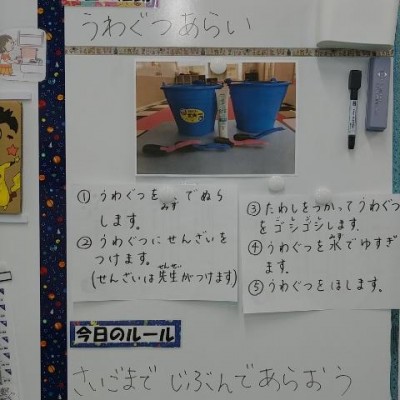 うわぐつあらい
① うわぐつを水でぬら
みず
します。
② うわぐつにせんざいを
つけます。
(せんざいは先生がつけます)
せんせい
③ たわしをつかってうわぐつ
をゴシゴシします。
④ うわぐつを水でゆすぎ
みず
ます。
⑤ うわぐつをほします。
今日のルール
さいごまで じぶんであらおう